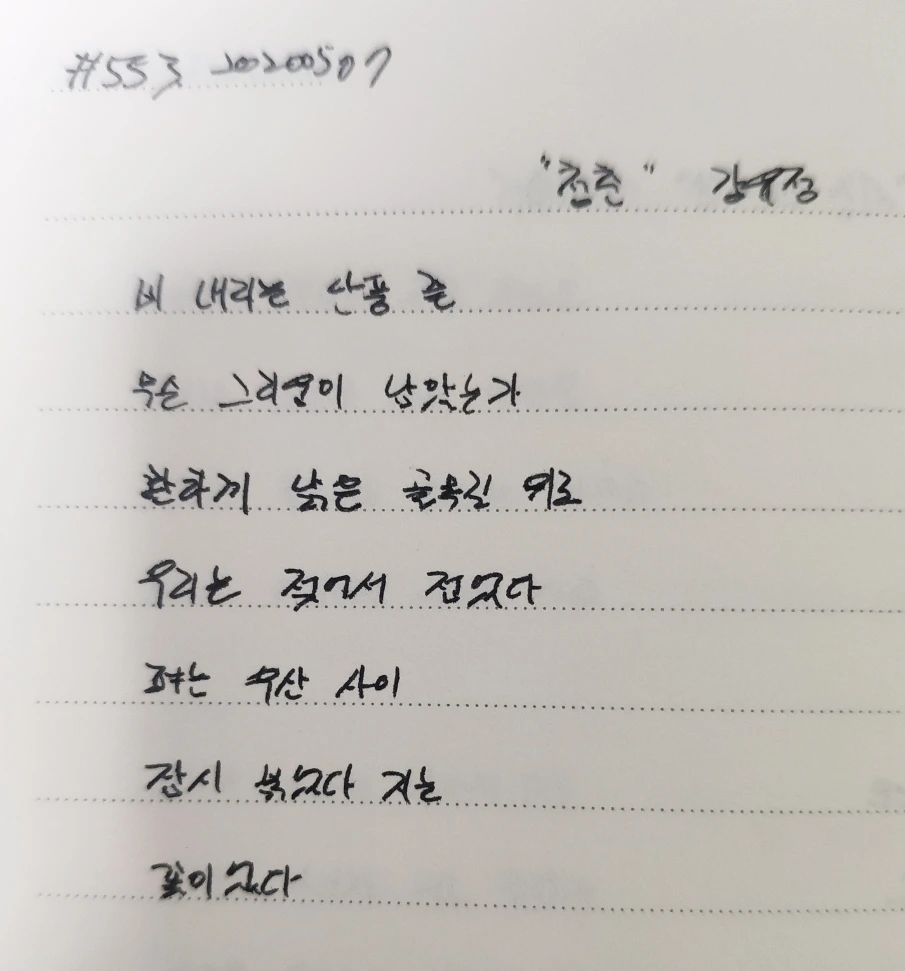 #553 20200507
"청춘" 강유정
비 내리는 산풍 즐
무슨 그리움이 남았는가
환하게 낡은 골목길 위로
우리는 젖어서 접었다
펴는 우산 사이
잠시 붉었다 지는
꽃이었다